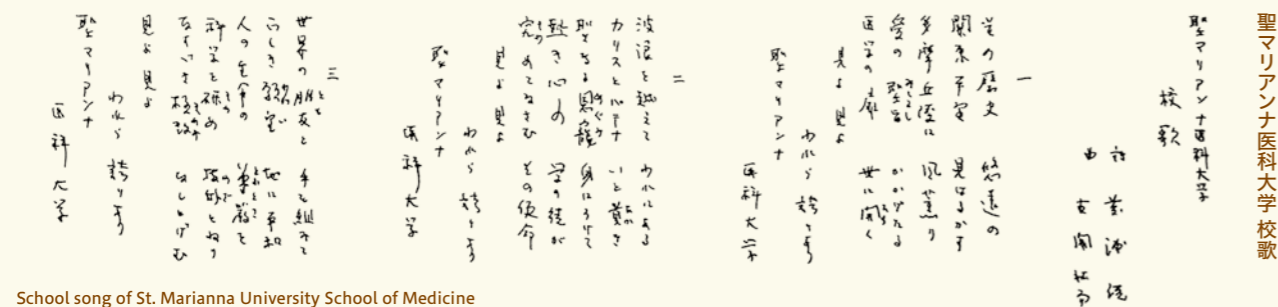 聖マリアンナ医科大学 校歌
聖マリアンナ医科大学
校歌
詩
曲 古関裕而
一
の歴史 悠遠の
関東平野 見はるかす
多摩丘陵に 風薫り
愛の聖旨 かかげたる
医学の扉 世に開く
見よ見よ
われら 誇りあり
聖マリアンナ
医科大学
二
波浪を越えて われにある
カリスと いと貴き
聖なる恩寵 身にうけて
堅き心の 学の徒が
究めてなさむ その使命
見よ見よ
われら 誇りあり
聖マリアンナ
医科大学
三
世界の朋友と 手を組みて
願望 地に平和
人の生命の 尊厳を
科学を研め ねり
極致 なしとげむ
見よ見よ
われら 誇りあり
聖マリアンナ
医科大学
School song of St. Marianna University School of Medicine